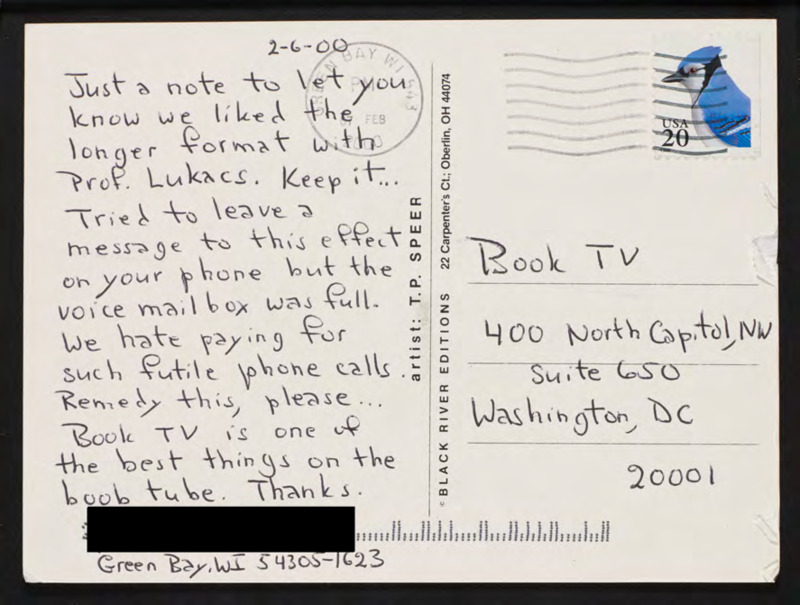 2-6-00
Just a note to let you
know we liked the
longer format with
Prof. Lukacs. Keep it...
Tried to leave a
message to this effect
on your phone but the
voice mail box was full.
We hate paying for
such futile phone calls.
Remedy this, please...
Book TV is one of
the best things on the
boob tube. Thanks.
Green Bay, WI 54305-1623
GREEN BAY WI 543
PM
FEB
2000
artist: T.P. SPEER
© BLACK RIVER EDITIONS 22 Carpenter's Ct.; Oberlin, OH 44074
USA
20
Book TV
400 North Capitol, NW
Suite 650
Washington, DC
20001